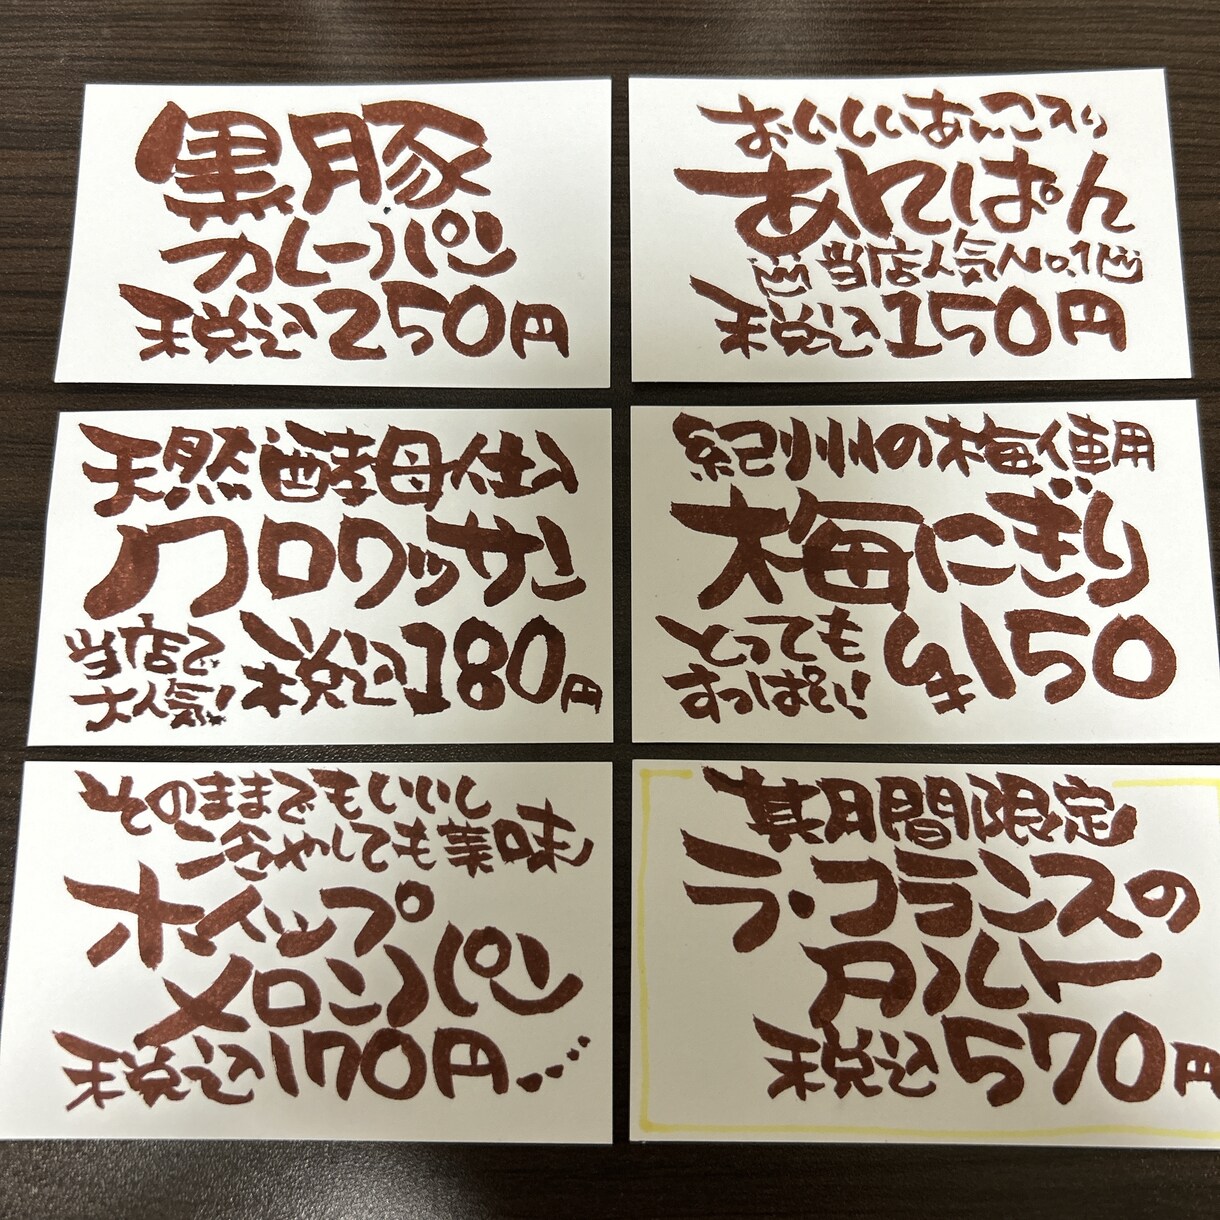 黒豚
カレーパン
税込250円
おいしいあんこ入り
あんぱん
当店人気No.1
税込150円
天然酵母仕込
クロワッサン
当店で
大人気!
税込180円
紀州の梅使用
梅にぎり
とっても
すっぱい!
150
そのままでもいいし
冷やしても美味
ホイップ
メロンパン
税込170円....
期間限定
ラ・フランスの
タルト
税込570円